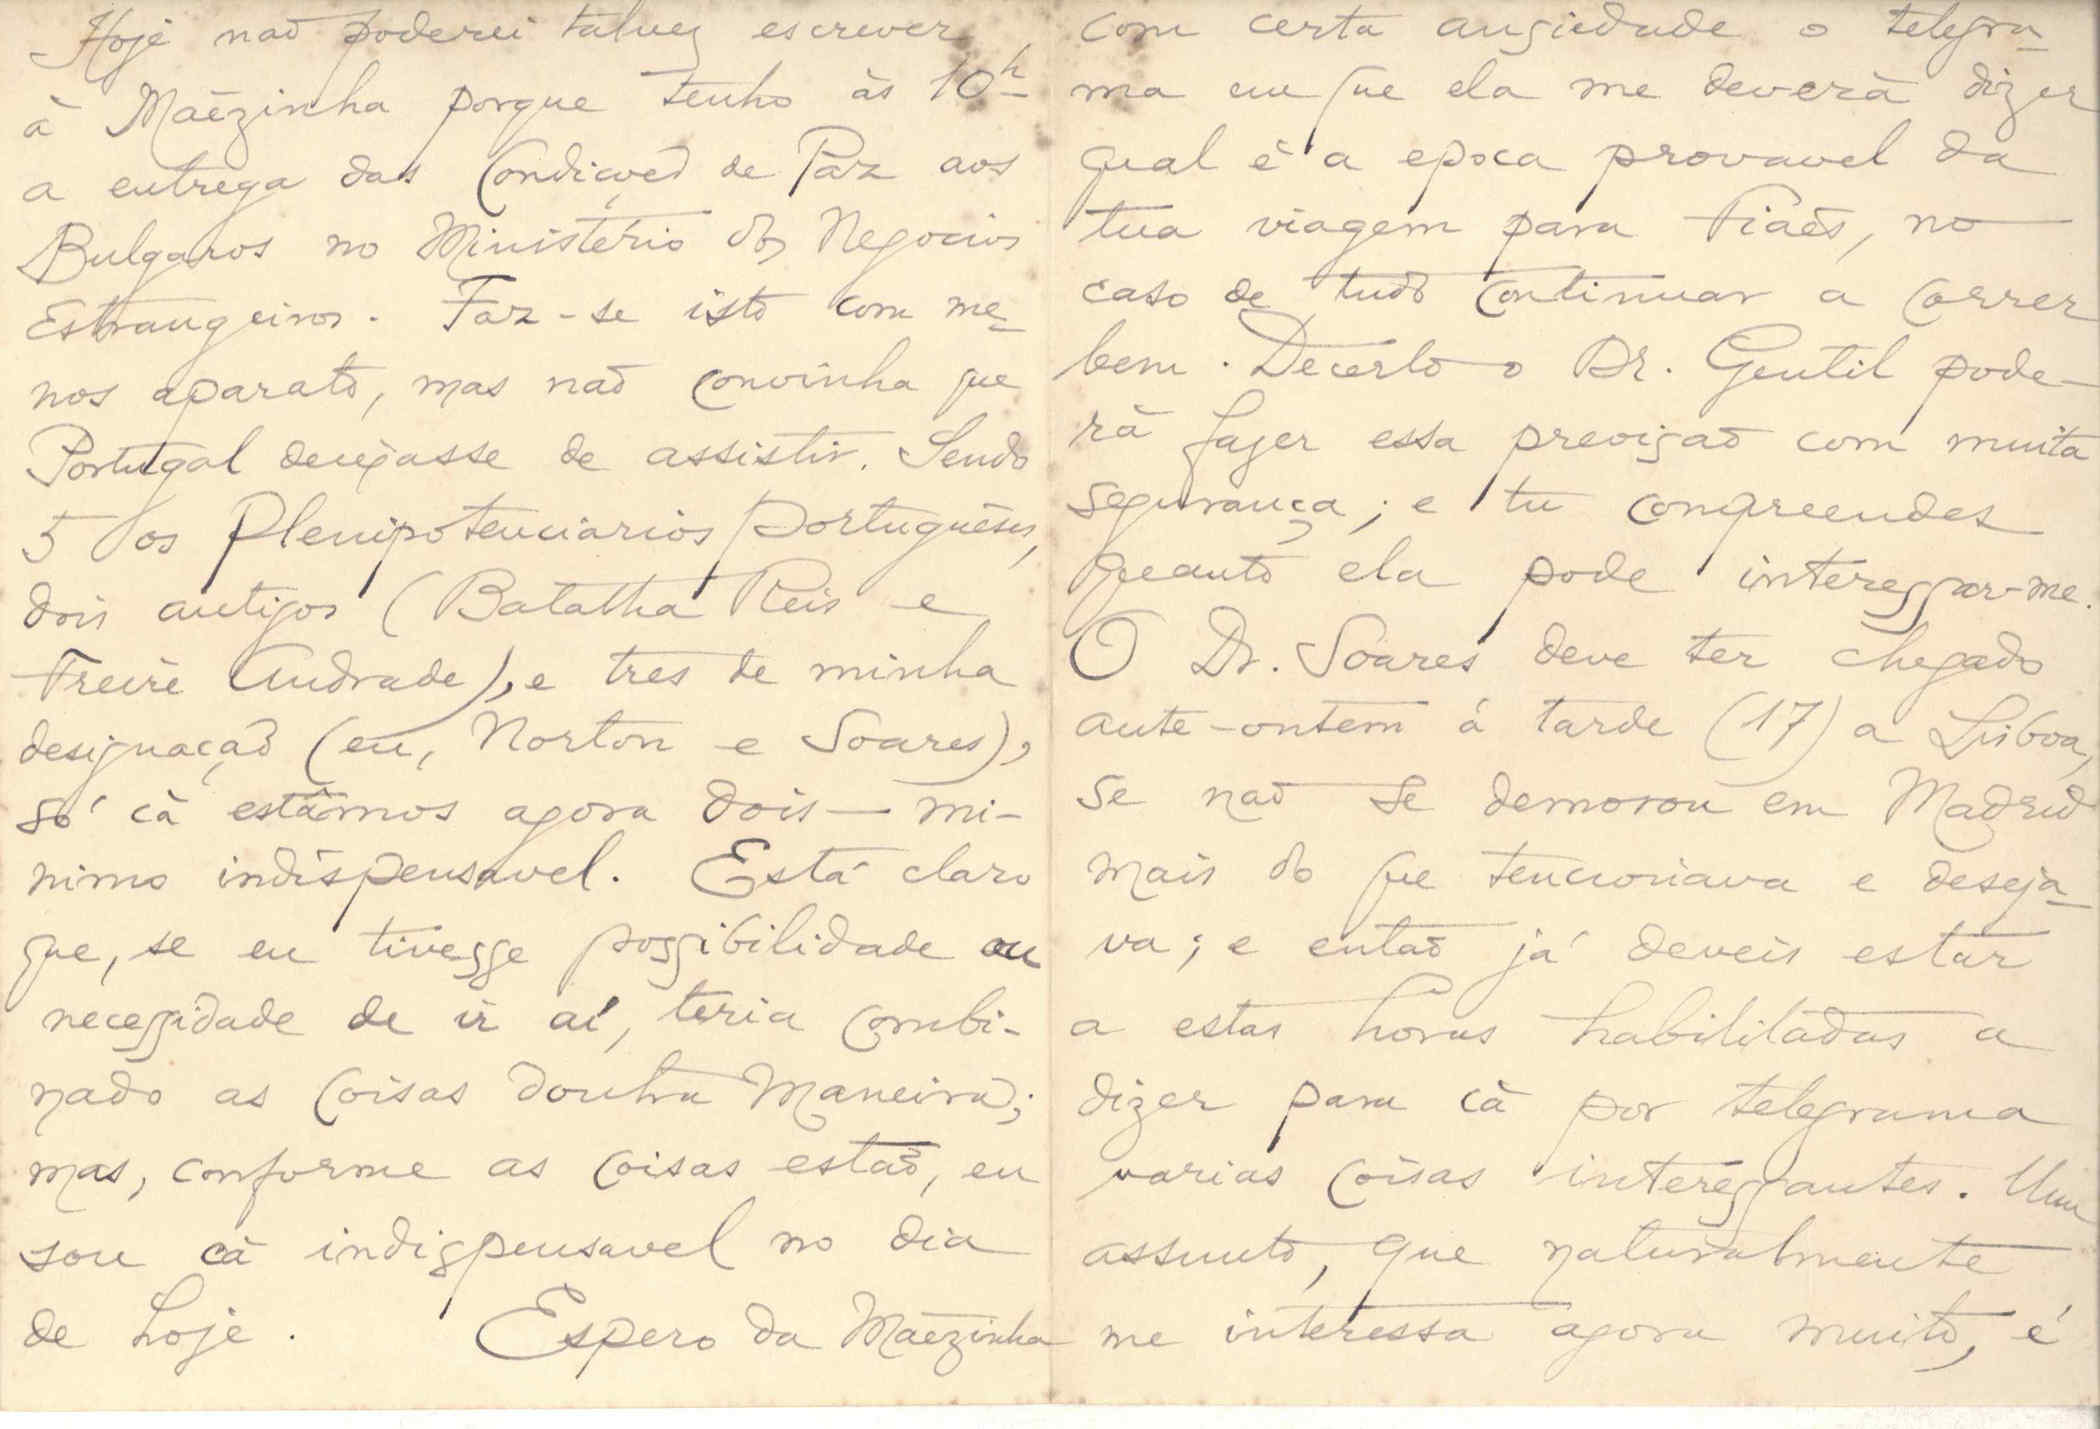 Hoje não poderei talvez escrever
à Mãezinha porque tenho às 10h
a entrega das Condições de Paz aos
Bulgaros no Ministério dos Negocios
Estrangeiros. Faz-se isto com me-
nos aparato, mas não convinha que
Portugal deixasse de assistir. Sendo
5 os Plenipotenciarios Portuguêses,
dois antigos (Batalha Reis e
Freire Andrade), e tres de minha
designação (eu, Norton e Soares),
só cà estâmos agora dois — mi-
nimo indispensavel. Está claro
que, se eu tivesse possibilidade ou
necessidade de ir aí, teria combi-
nado as coisas doutra maneira;
mas, conforme as coisas estão, eu
sou cà indispensavel no dia
de hoje. Espero da Mãezinha
com certa ansiedade o telegra-
ma em que ela me deverà dizer
qual é a epoca provavel da
tua viagem para Fiães, no
caso de tudo continuar a correr
bem. Decerto o Dr. Gentil pode-
rà fazer essa previsão com muita
segurança; e tu compreendes
quanto ela pode interessar-me.
O Dr. Soares deve ter chegado
ante-ontem á tarde (17) a Lisboa,
se não se demorou em Madrid
mais do que tencionava e deseja-
va; e então já deveis estar
a estas horas habilitadas a
dizer para cà por telegrama
varias coisas interessantes. Um
assunto, que naturalmente
me interessa agora muito, é